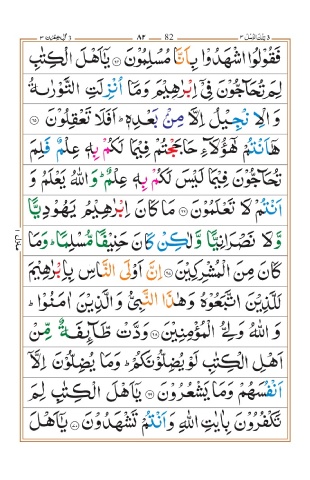 ۸۲ 82
فَقُوۡلُوا اشۡهَدُوۡا بِاَنَّا مُسۡلِمُوۡنَ ﴿۶۴﴾ يٰۤاَهۡلَ الۡكِتٰبِ
لِمَ تُحَآجُّوۡنَ فِىۡۤ اِبۡرٰهِيۡمَ وَمَاۤ اُنۡزِلَتِ التَّوۡرٰٮةُ
وَالۡاِنۡجِيۡلُ اِلَّا مِنۡۢ بَعۡدِهٖؕ اَفَلَا تَعۡقِلُوۡنَ ﴿۶۵﴾
هٰۤاَنۡتُمۡ هٰٓؤُلَآءِ حَاجَجۡتُمۡ فِيۡمَا لَكُمۡ بِهٖ عِلۡمٌ فَلِمَ
تُحَآجُّوۡنَ فِيۡمَا لَيۡسَ لَكُمۡ بِهٖ عِلۡمٌؕ وَاللّٰهُ يَعۡلَمُ وَ
اَنۡتُمۡ لَا تَعۡلَمُوۡنَ ﴿۶۶﴾ مَا كَانَ اِبۡرٰهِيۡمُ يَهُوۡدِيًّا
وَّلَا نَصۡرَانِيًّا وَّلٰكِنۡ كَانَ حَنِيۡفًا مُّسۡلِمًاؕ وَمَا
كَانَ مِنَ الۡمُشۡرِكِيۡنَ ﴿۶۷﴾ اِنَّ اَوۡلَى النَّاسِ بِاِبۡرٰهِيۡمَ
لَلَّذِيۡنَ اتَّبَعُوۡهُ وَهٰذَا النَّبِىُّ وَالَّذِيۡنَ اٰمَنُوۡاؕ
وَاللّٰهُ وَلِىُّ الۡمُؤۡمِنِيۡنَ ﴿۶۸﴾ وَدَّتۡ طَّآٮِٕفَةٌ مِّنۡ
اَهۡلِ الۡكِتٰبِ لَوۡ يُضِلُّوۡنَكُمؕۡ وَمَا يُضِلُّوۡنَ اِلَّاۤ
اَنۡفُسَهُمۡ وَمَا يَشۡعُرُوۡنَ ﴿۶۹﴾ يٰۤاَهۡلَ الۡكِتٰبِ لِمَ
تَكۡفُرُوۡنَ بِاٰيٰتِ اللّٰهِ وَاَنۡتُمۡ تَشۡهَدُوۡنَ ﴿۷۰﴾ يٰۤاَهۡلَ